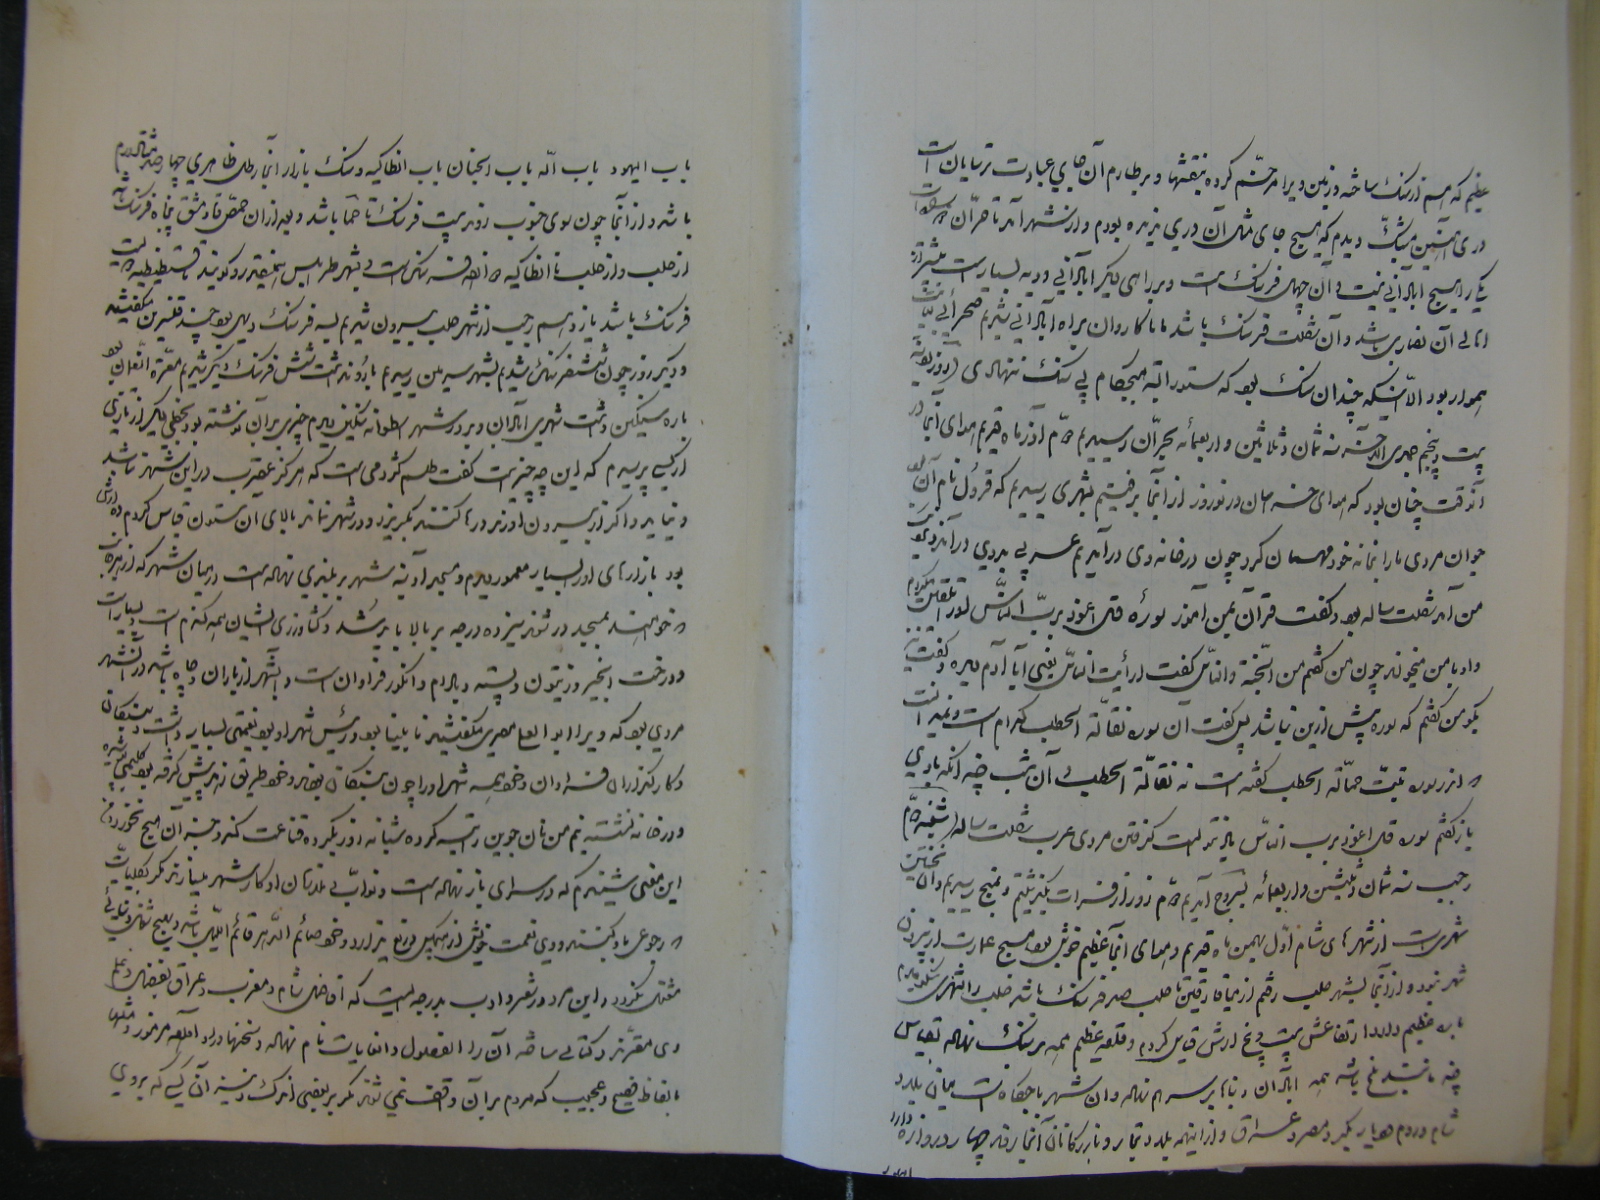 عظیم که هم از سنگ ساخته و زمین ویرا مرخم کرده بنقشها و بر طارم آن جای عبادت ترسایان است
دری آهنین مشبک دیدم که هیچ جای مثل آن دری ندیده بودم و از شهر آمد تا حرّان دو راه است
یکی را هیچ آبادانی نیست و آن چهل فرسنگ است و بر راهی دیگر آبادانی و دیه بسیار است بیشتر
اهالی آن نصاری باشد و آن شصت فرسنگ باشد ما با کاروان براه آبادانی شدیم صحرائی
هموار بود الّا آنکه چندان سنگ بود که ستور البته هیچ گام بی سنگ ننهادی روز آدینه
بیست و پنجم جمدی الآخر سنه ثمان و ثلاثین و اربعمائه بحرّان رسیدیم دوم آذرماه قدیم هوای آنجا در
آنوقت چنان بود که هوای خراسان در نوروز از آنجا برفتیم بشهری رسیدیم که قرول نام آن بود
جوان مردی ما را بخانه خود مهمان کرد چون در خانه وی در آمدیم عربی بدوی در آمد نزدیک
من آمد شصت ساله بود و گفت قرآن بمن آموز سورۀ قل اعوذ بربّ النّاس او را تلقین میکردم
و او با من میخواند چون من گفتم من الجنّة والنّاس گفت ارأیت النّاس نیز
بگویم من گفتم که سوره بیش ازین نباشد پس گفت آن سوره نقّالة الحطب کدام است و نمیدانست
که اندر سوره تبّت حمّالة الحطب گفته است نه نقّالة الحطب و آن شب چندانکه با وی
باز گفتم سوره قل اعوذ برب النّاس یاد نتوانست گرفتن مردی عرب شصت ساله شنبه دوم
رجب سنه ثمان و ثلثین و اربعمائه بسروج آمدیم دوم روز از فرات بگذشتیم و بمنبج رسیدیم و آن نخستین
شهریست از شهرهای شام اوّل بهمن ماه قدیم و هوای آنجا عظیم خوش بود هیچ عمارت از بیرون
شهر نبود و از آنجا بشهر حلب رفتم از میّافارقین تا حلب صد فرسنگ باشد حلب را شهری نیکو دیدم
باره عظیم دارد ارتفاعش بیست و پنج ارش قیاس کردم و قلعه عظیم همه بر سنگ نهاده بقیاس
چند بلخ باشد همه آبادان و بناها بر سر هم نهاده و آن شهر باجگاه است میان بلاد
شام و روم و دیار بکر و مصر و عراق و ازینهمه بلاد تجار و بازرگانان آنجا روند چهار دروازه دارد
باب الیهود باب الله باب الجنان باب انطاکیه و سنگ بازار آنجا رطل ظاهری چهارصد و هشتاد درم
باشد و از آنجا چون سوی جنوب روند بیست فرسنگ تا حما باشد و بعد از آن حمص تا دمشق پنجاه فرسنگ باشد
از حلب و از حلب تا انطاکیه دوازده فرسنگ است و بشهر طرابلس همینقدر و گویند تا قسطنطنیه دویست
فرسنگ باشد یازدهم رجب از شهر حلب بیرون شدیم بسه فرسنگ دیهی بود جند قنسرین میگفتند
و دیگر روز چون شش فرسنگ شدیم بشهر سرمین رسیدیم بارو نداشت شش فرسنگ دیگر شدیم معرّة النعمان بود
باره سنگین داشت شهری آبادان و بر در شهر اسطوانه سنگین دیدم چیزی بر آن نوشته بود بخطی دیگر از تازی
از کسی پرسیدم که این چه چیز است گفت طلسم کژدمی است که هرگز عقرب در این شهر نباشد
و نیاید و اگر از بیرون آورند و رها کنند بگریزد و در شهر نماند بالای آن ستون قیاس کردم ده ارش
بود بازارهای او بسیار معمور دیدم و مسجد آدینه شهر بر بلندی نهاده است در میان شهر که از هر جانب
که خواهند بمسجد در شوند سیزده درجه بر بالا باید شد و کشاورزی ایشان همه گندم است و بسیار است
و درخت انجیر و زیتون و پسته و بادام و انگور فراوان است و آب شهر از باران و چاه باشد در آن شهر
مردی بود که ویرا ابوالعلا معری میگفتند نابینا بود و رئیس شهر او بود نعمتی بسیار داشت و بندگان
و کارگزاران فراوان و خود همه شهر او را چون بندگان بودند و خود طریق زهد پیش گرفته بود گلیمی پوشیده
و در خانه نشسته نیم من نان جوین راتبه کرده شبانه روز بگرده قناعت کند و جز آن هیچ نخورد و من
این معنی شنیدم که در سرای باز نهاده است و نوّاب و ملازمان او کار شهر میسازند مگر بکلیات
که رجوعی باو کنند و وی نعمت خویش از هیچکس دریغ ندارد و خود صائم الدّهر قائم اللیل باشد و بهیچ شغل دنیائی
مشغول نگردد و این مرد در شعر و ادب بدرجه ایست که افاضل شام و مغرب و عراق بفضل و علم
وی مقرّند و کتابی ساخته آن را الفصول والغایات نام نهاده و سخنها در او آورده مرموز و مثلها
بالفاظ فصیح و عجیب که مردم بر آن واقف نمی شوند مگر بر بعضی اندک و نیز آن کسی که بر وی